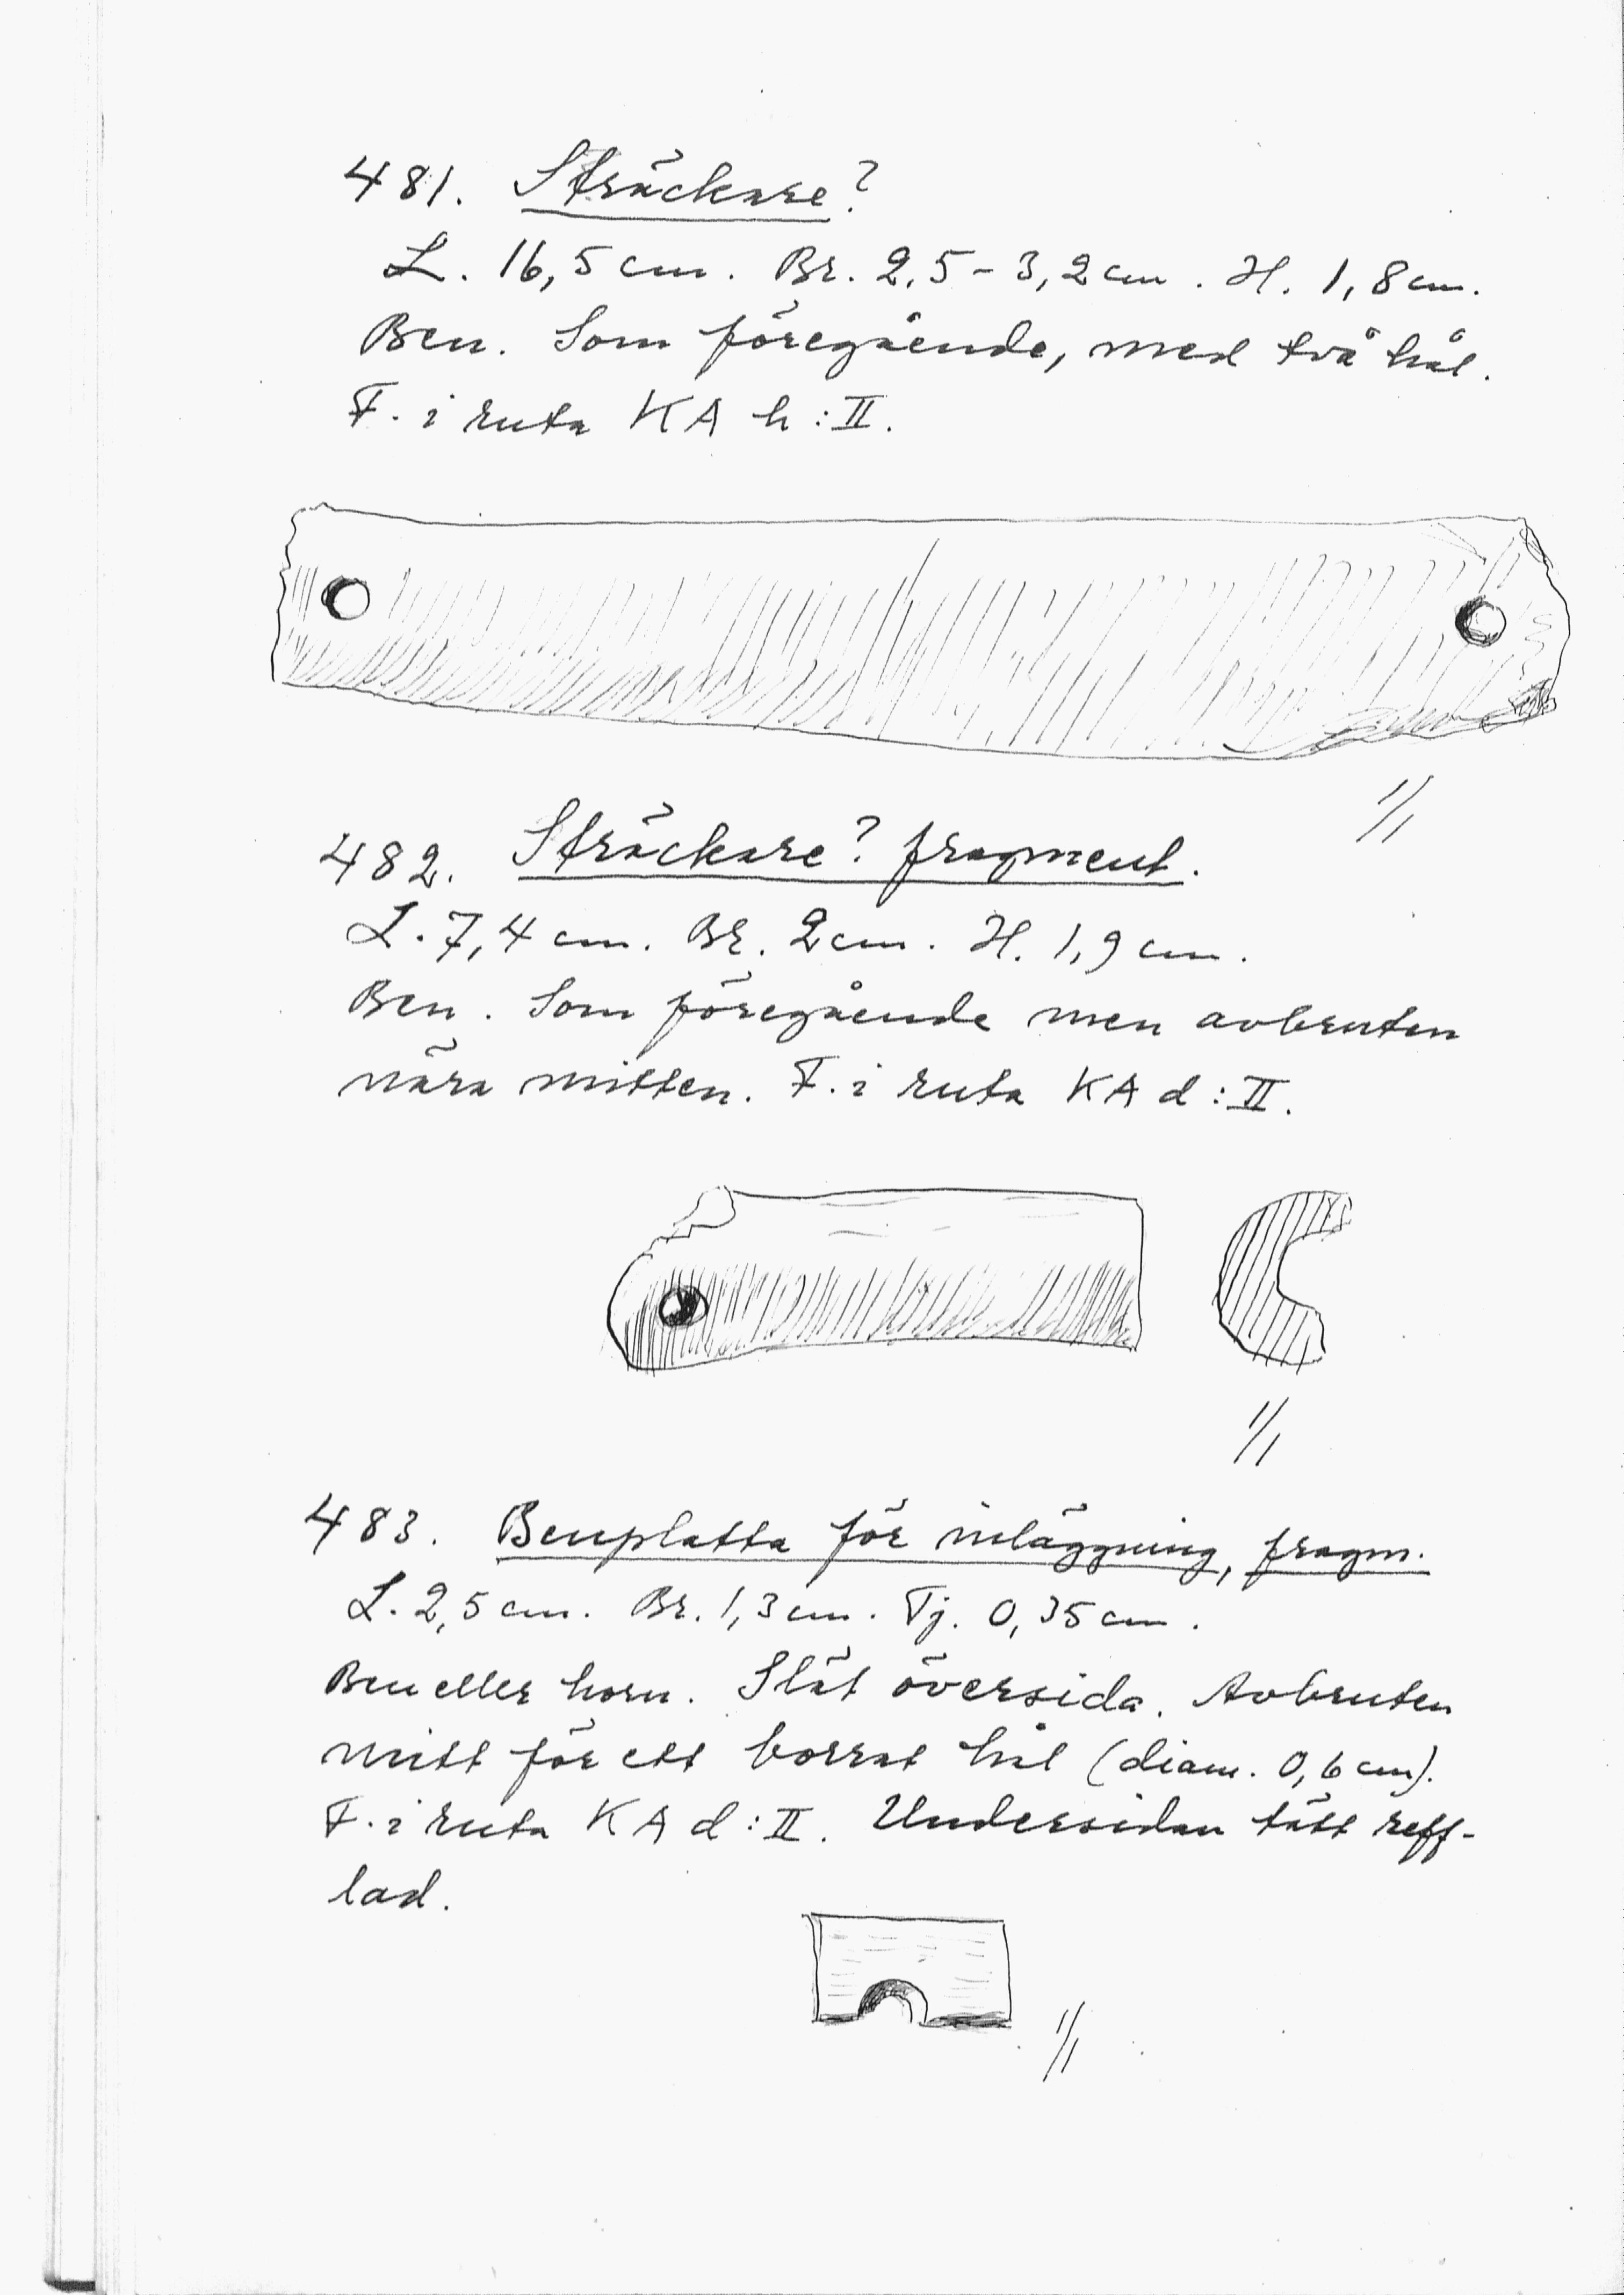 481. Sträckare?
L. 16,5 cm. Br. 2,5-3,2 cm. H. 1,8 cm.
Ben. Som föregående, med två hål.
F. i ruta KA h:II.
1/1
482. Sträckare? fragment.
L. 7,4 cm. Br. 2 cm. H. 1,9 cm.
Ben. Som föregående men avbruten
nära mitten. F. i ruta KA d:II.
1/1
483. Benplatta för inläggning, fragm.
L. 2,5 cm. Br. 1,3 cm. Tj. 0,35 cm.
Ben eller horn. Slät översida. Avbruten
mitt för ett borrat hål (diam. 0,6 cm).
F. i ruta KA d:II. Undersidan tätt reff-
lad.
1/1